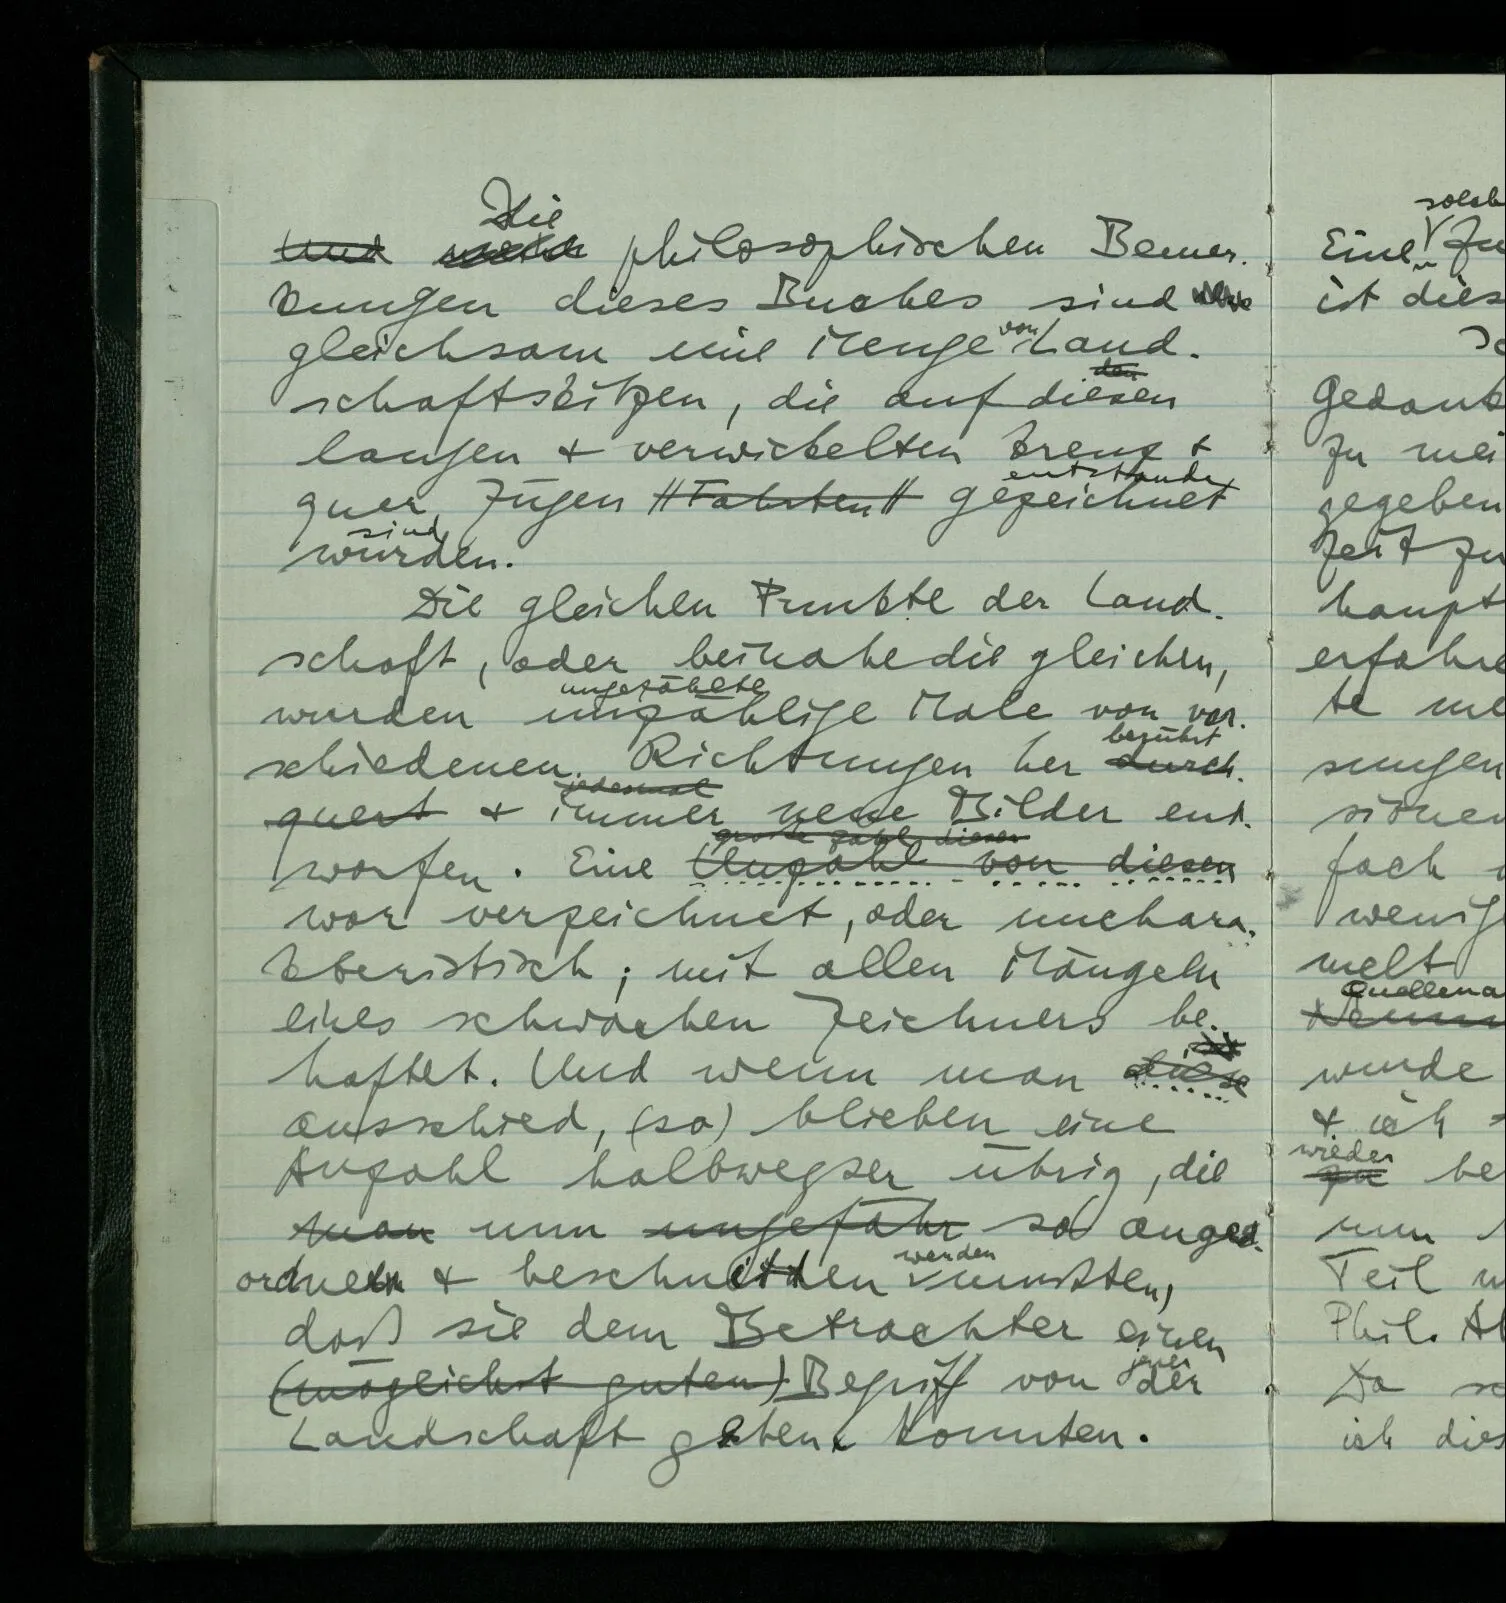 Die
Und philosophischen Bemer-
kungen dieses Buches sind
gleichsam eine Menge von Land-
schaftskitzen, die auf diesen
den
langen & verwickelten kreuz &
quer Zügen //Fahrten// gezeichnet
entstanden
wurden.
sind
Die gleichen Punkte der Land-
schaft, oder beinahe die gleichen,
ungezählte
wurden unzählige Male von ver-
schiedenen Richtungen her durch-
berührt
quert & immer neue Bilder ent-
jedesmal
worfen. Eine Unzahl von diesen
große Zahl dieser
war verzeichnet, oder unchara-
kteristisch; mit allen Mängeln
eines schwachen Zeichners be-
haftet. Und wenn man diese
ausschied, (so) blieben eine
Anzahl halbwegser übrig, die
man nun ungefähr so ange-
ordnet & beschnitten werden mußten,
daß sie dem Betrachter einen
(möglichst guten) Begriff von der
jener
Landschaft geben konnten.
Eine
ist dies
zu
gegeben
haupt
te
fach
melt
wurde
& ich
wieder
zu
nun
Teil
Phil.
Da
ich dies